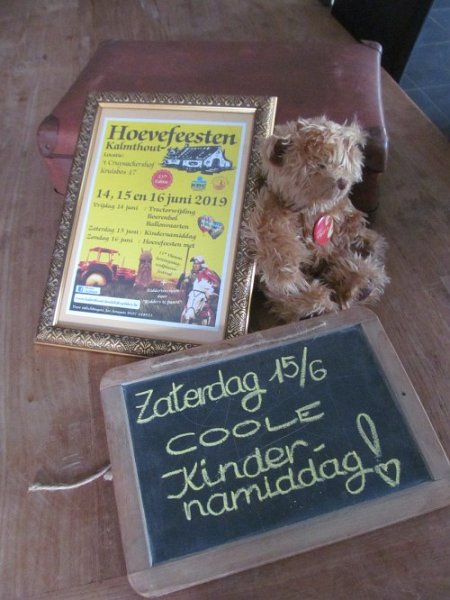 Hoevefeesten
Kalmthout
Locatie:
't Cruysackershof
Kruisbos 17
14, 15 en 16 juni 2019
Vrijdag 14 juni : Tractorwijding
Boerenbal
Ballonvaarten
Zaterdag 15 juni : Kindernamiddag
Zondag 16 juni : Hoevefeesten met
Zaterdag 15/6
COOLE
Kinder-
namiddag!